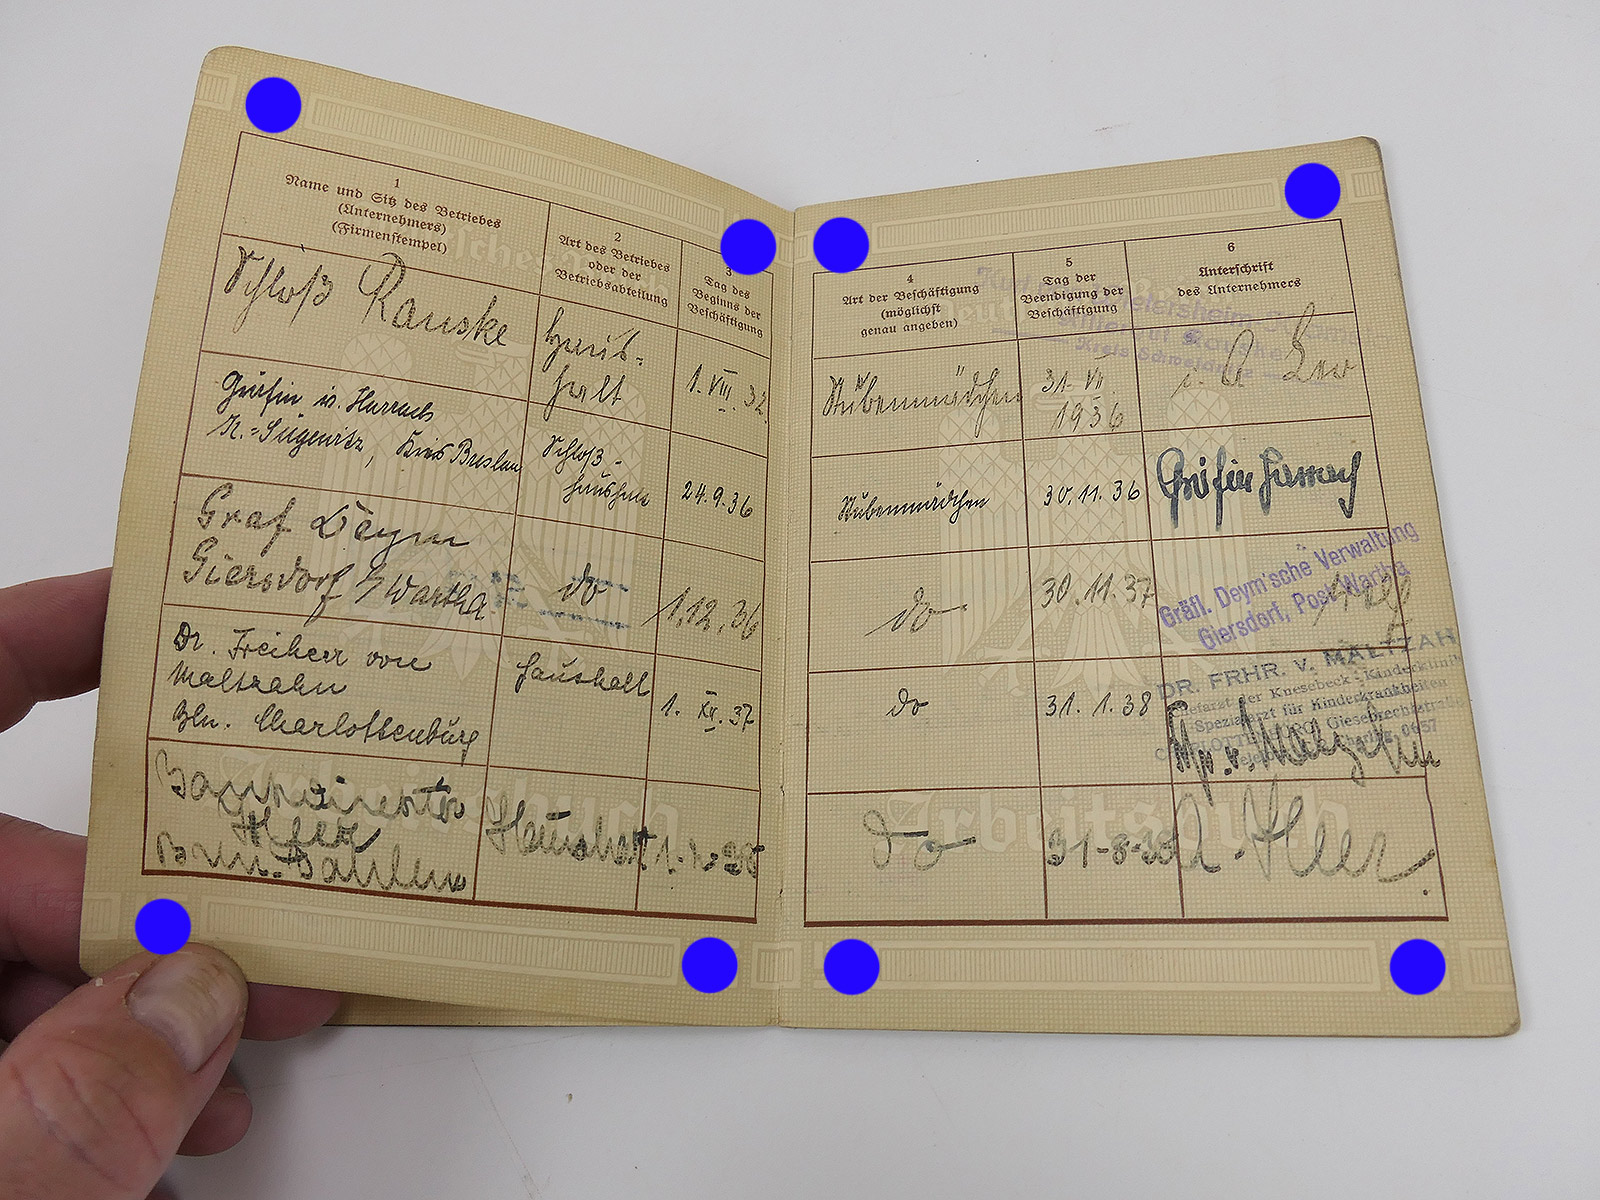 1
Name und Sitz des Betriebes
(Unternehmers)
(Firmenstempel)
2
Art des Betriebes
oder der
Betriebsabteilung
3
Tag des
Beginns der
Beschäftigung
4
Art der Beschäftigung
(möglichst
genau angeben)
5
Tag der
Beendigung der
Beschäftigung
6
Unterschrift
des Unternehmers
Schloß Rauske
Haus-
halt
1. VIII. 32
Stubenmädchen
31. VII
1936
i. A
Kreis Schweidnitz
Gräfin v. Harrach
Kreis Breslau
Schloß-
haushalt
24.9.36
Stubenmädchen
30.11.36
Gräfin Harrach
Graf Deym
Giersdorf b/Wartha.
do
1.12.36
do
30.11.37
Gräfl. Deym'sche Verwaltung
Giersdorf, Post Wartha
Dr. Freiherr von
Maltzahn
Bln. Charlottenburg
Haushalt
1. XII. 37
do
31. 1. 38
DR. FRHR. V. MALTZAHN
Chefarzt der Knesebeck-Kinderklinik
Spezialarzt für Kinderkrankheiten
Giesebrechtstraße
v. Maltzahn
Bankdirektor
Haushalt
do
31-8-38
Arbeitsbuch
Arbeitsbuch